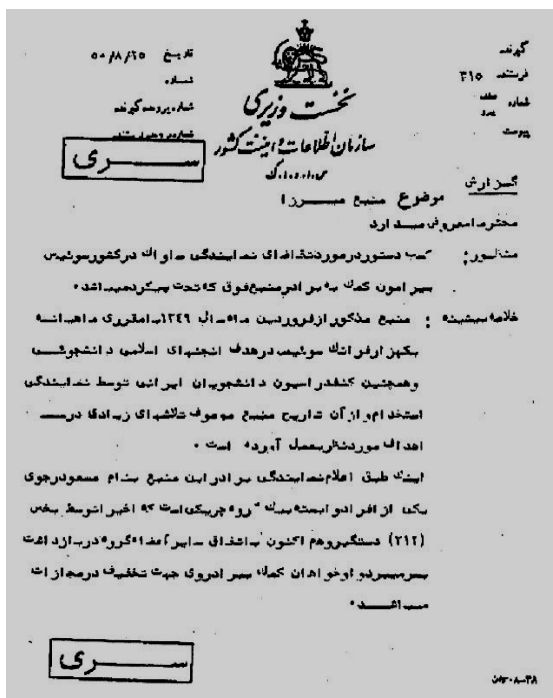 گیرنده
فرستنده ۳۱۵
شماره
پیوست
نخست وزیری
سازمان اطلاعات و امنیت کشور
س.ا.و.ا.ک
تاریخ ۵۰/۸/۲۵
شماره
شماره پرونده گیرنده
شماره پرونده فرستنده
ســـــری
گزارش
موضوع منبع میـــرزا
محترما معروض میدارد
منظور: کسب دستور در مورد تقاضای نمایندگی ساواک در کشور سوئیس
پیرامون کمک به برادر منبع فوق که تحت پیگرد میباشد.
خلاصه پیشینه: منبع مذکور از فروردین ماه سال ۱۳۴۹ با مقرری ماهیانه
یکهزار فرانک سوئیس در هدف انجمنهای اسلامی دانشجوئـــی
و همچنین کنفدراسیون دانشجویان ایرانی توسط نمایندگی
استخدام و از آن تاریخ منبع موصوف تلاشهای زیادی در
اهداف مورد نظر بعمل آورده است.
اینک طبق اعلام نمایندگی برادر این منبع بنام مسعود رجوی
یکی از افراد وابسته بیک گروه چریکی است که اخیرا توسط بخش
(۳۱۲) دستگیر و هم اکنون باتفاق سایر اعضاء گروه در بازداشت
بسر میبرد و او خواهان کمک به برادر وی جهت تخفیف در مجازات
میباشـــد.
ســـــری